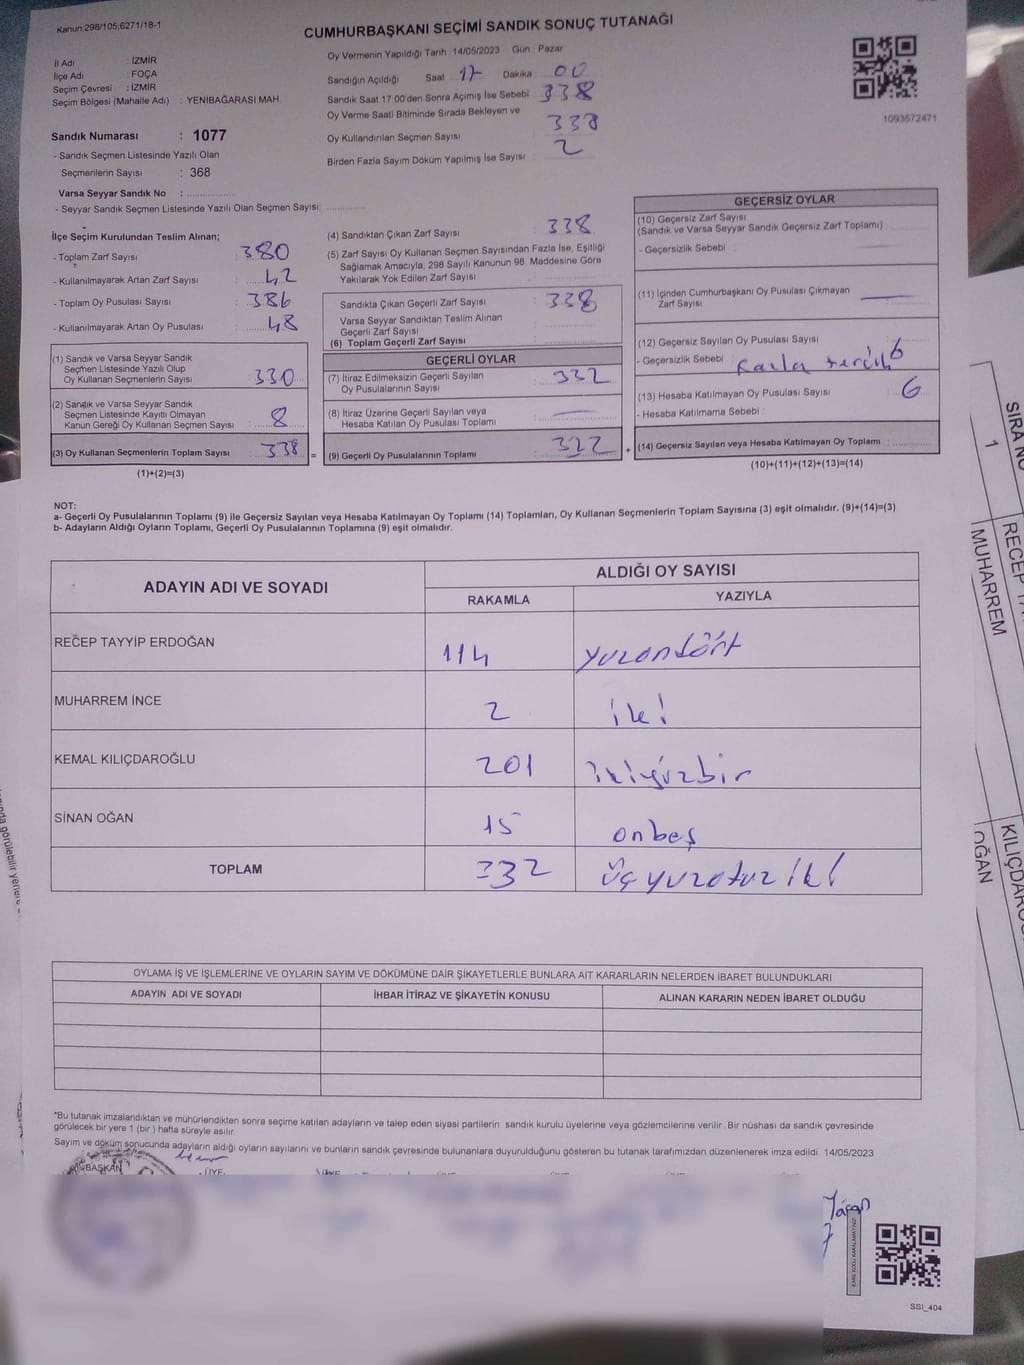 Kanun:298/105;6271/18-1
CUMHURBAŞKANI SEÇİMİ SANDIK SONUÇ TUTANAĞI
İl Adı : İZMİR
İlçe Adı : FOÇA
Seçim Çevresi : İZMİR
Seçim Bölgesi (Mahalle Adı) : YENİBAĞARASI MAH
Sandık Numarası : 1077
- Sandık Seçmen Listesinde Yazılı Olan
Seçmenlerin Sayısı : 368
Varsa Seyyar Sandık No :
- Seyyar Sandık Seçmen Listesinde Yazılı Olan Seçmen Sayısı:
Oy Vermenin Yapıldığı Tarih : 14/05/2023 Gün : Pazar
Sandığın Açıldığı Saat 17 Dakika 00
Sandık Saat 17:00'den Sonra Açımış İse Sebebi : 338
Oy Verme Saati Bitiminde Sırada Bekleyen ve
Oy Kullandırılan Seçmen Sayısı : 338
Birden Fazla Sayım Döküm Yapılmış İse Sayısı : 2
1093672471
İlçe Seçim Kurulundan Teslim Alınan;
- Toplam Zarf Sayısı : 380
- Kullanılmayarak Artan Zarf Sayısı : 42
- Toplam Oy Pusulası Sayısı : 386
- Kullanılmayarak Artan Oy Pusulası : 48
(1) Sandık ve Varsa Seyyar Sandık
Seçmen Listesinde Yazılı Olup
Oy Kullanan Seçmenlerin Sayısı : 330
(2) Sandık ve Varsa Seyyar Sandık
Seçmen Listesinde Kayıtlı Olmayan
Kanun Gereği Oy Kullanan Seçmen Sayısı : 8
(3) Oy Kullanan Seçmenlerin Toplam Sayısı : 338 =
(1)+(2)=(3)
(4) Sandıktan Çıkan Zarf Sayısı : 338
(5) Zarf Sayısı Oy Kullanan Seçmen Sayısından Fazla İse, Eşitliği
Sağlamak Amacıyla, 298 Sayılı Kanunun 98. Maddesine Göre
Yakılarak Yok Edilen Zarf Sayısı :
Sandıkta Çıkan Geçerli Zarf Sayısı : 338
Varsa Seyyar Sandıktan Teslim Alınan
Geçerli Zarf Sayısı :
(6) Toplam Geçerli Zarf Sayısı :
GEÇERLİ OYLAR
(7) İtiraz Edilmeksizin Geçerli Sayılan
Oy Pusulalarının Sayısı : 332
(8) İtiraz Üzerine Geçerli Sayılan veya
Hesaba Katılan Oy Pusulası Toplamı : —
(9) Geçerli Oy Pusulalarının Toplamı : 322 +
GEÇERSİZ OYLAR
(10) Geçersiz Zarf Sayısı
(Sandık ve Varsa Seyyar Sandık Geçersiz Zarf Toplamı) :
- Geçersizlik Sebebi :
(11) İçinden Cumhurbaşkanı Oy Pusulası Çıkmayan
Zarf Sayısı : —
(12) Geçersiz Sayılan Oy Pusulası Sayısı : 6
- Geçersizlik Sebebi : Fazla tercih
(13) Hesaba Katılmayan Oy Pusulası Sayısı : 6
- Hesaba Katılmama Sebebi :
(14) Geçersiz Sayılan veya Hesaba Katılmayan Oy Toplamı :
(10)+(11)+(12)+(13)=(14)
NOT:
a- Geçerli Oy Pusulalarının Toplamı (9) ile Geçersiz Sayılan veya Hesaba Katılmayan Oy Toplamı (14) Toplamları, Oy Kullanan Seçmenlerin Toplam Sayısına (3) eşit olmalıdır. (9)+(14)=(3)
b- Adayların Aldığı Oyların Toplamı, Geçerli Oy Pusulalarının Toplamına (9) eşit olmalıdır.
ADAYIN ADI VE SOYADI ALDIĞI OY SAYISI
RAKAMLA YAZIYLA
RECEP TAYYİP ERDOĞAN 114 yüzondört
MUHARREM İNCE 2 iki
KEMAL KILIÇDAROĞLU 201 ikiyüzbir
SİNAN OĞAN 15 onbeş
TOPLAM 332 üçyüzotuziki
OYLAMA İŞ VE İŞLEMLERİNE VE OYLARIN SAYIM VE DÖKÜMÜNE DAİR ŞİKAYETLERLE BUNLARA AİT KARARLARIN NELERDEN İBARET BULUNDUKLARI
ADAYIN ADI VE SOYADI İHBAR İTİRAZ VE ŞİKAYETİN KONUSU ALINAN KARARIN NEDEN İBARET OLDUĞU
"Bu tutanak imzalandıktan ve mühürlendikten sonra seçime katılan adayların ve talep eden siyasi partilerin sandık kurulu üyelerine veya gözlemcilerine verilir. Bir nüshası da sandık çevresinde
görülecek bir yere 1 (bir) hafta süreyle asılır.
Sayım ve döküm sonucunda adayların aldığı oyların sayılarını ve bunların sandık çevresinde bulunanlara duyurulduğunu gösteren bu tutanak tarafımızdan düzenlenerek imza edildi. 14/05/2023
BAŞKAN ÜYE
SSI_404
SIRA NO
1
RECEP
MUHARREM
KILIÇDAR
OĞAN